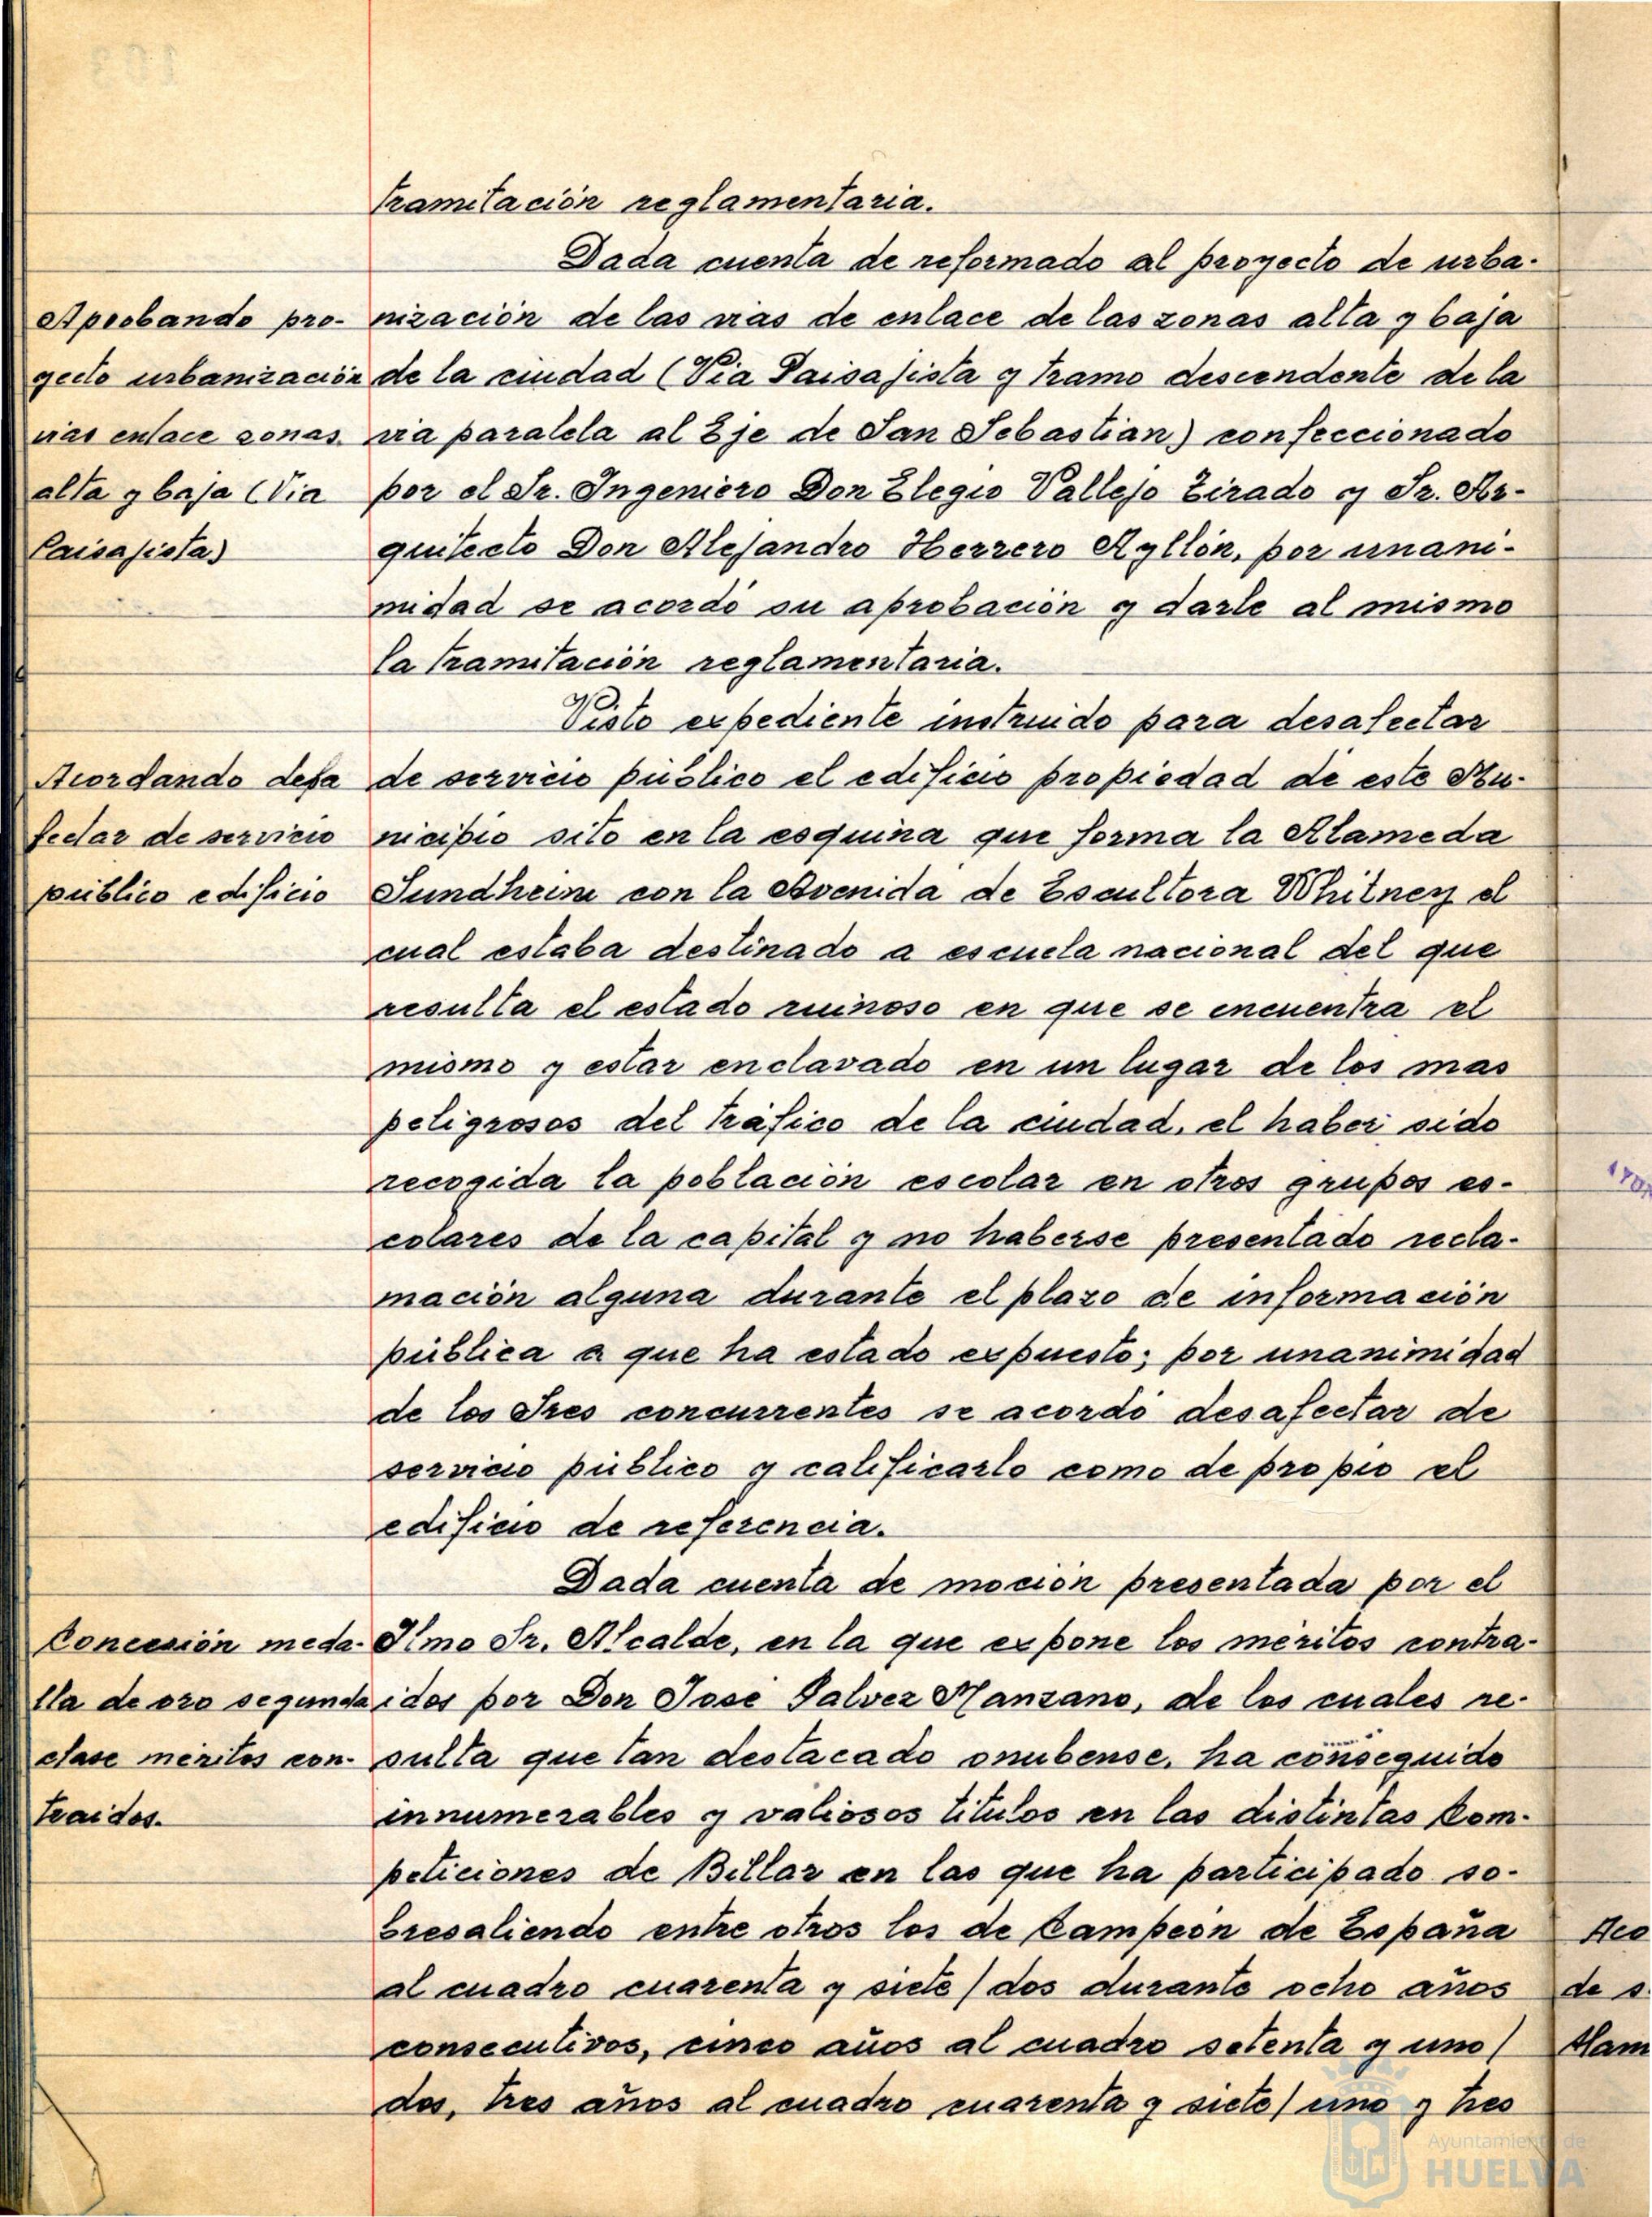 tramitación reglamentaria.
Dada cuenta de reformado al proyecto de urba-
Aprobando pro- nización de las vias de enlace de las zonas alta y baja
yecto urbanización de la ciudad (Via Paisajista y tramo descendente de la
vias enlace zonas via paralela al Eje de San Sebastian) confeccionado
alta y baja (Via por el Sr. Ingeniero Don Elegio Vallejo Zirado y Sr. Ar-
Paisajista) quitecto Don Alejandro Herrero Ayllón, por unani-
midad se acordó su aprobación y darle al mismo
la tramitación reglamentaria.
Visto expediente instruido para desafectar
Acordando desa de servicio público el edificio propiedad de este Mu-
fectar de servicio nicipio sito en la esquina que forma la Alameda
público edificio Sundheim con la Avenida de Escultora Whitney el
cual estaba destinado a escuela nacional del que
resulta el estado ruinoso en que se encuentra el
mismo y estar enclavado en un lugar de los mas
peligrosos del tráfico de la ciudad, el haber sido
recogida la población escolar en otros grupos es-
colares de la capital y no haberse presentado recla-
mación alguna durante el plazo de información
pública a que ha estado expuesto; por unanimidad
de los Sres concurrentes se acordó desafectar de
servicio público y calificarlo como de propio el
edificio de referencia.
Dada cuenta de moción presentada por el
Concesión meda- Ilmo Sr. Alcalde, en la que expone los méritos contra-
lla de oro segunda idos por Don José Galvez Manzano, de los cuales re-
clase méritos con- sulta que tan destacado onubense, ha conseguido
traidos. innumerables y valiosos titulos en las distintas Com-
peticiones de Billar en las que ha participado so-
bresaliendo entre otros los de Campeón de España
al cuadro cuarenta y siete/dos durante ocho años
consecutivos, cinco años al cuadro setenta y uno/
dos, tres años al cuadro cuarenta y siete/uno y tres
Aco
de s
Ham
Ayuntamiento de
HUELVA